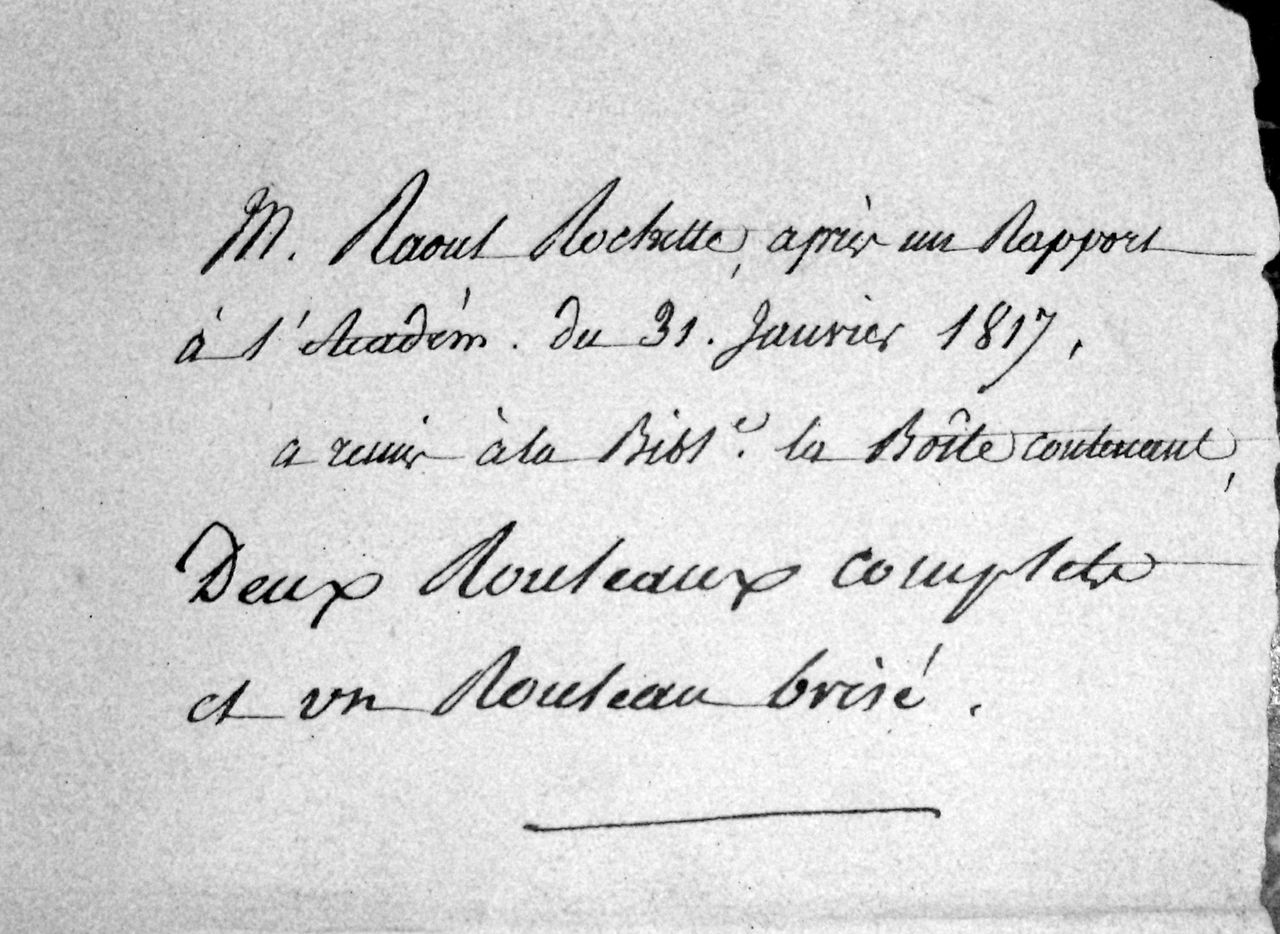 M. Raoul Rochette, après un Rapport
à l'Académ. du 31. Janvier 1817,
a remis à la Bibl.e la Boîte contenant,
Deux Rouleaux complets
et un Rouleau brisé.